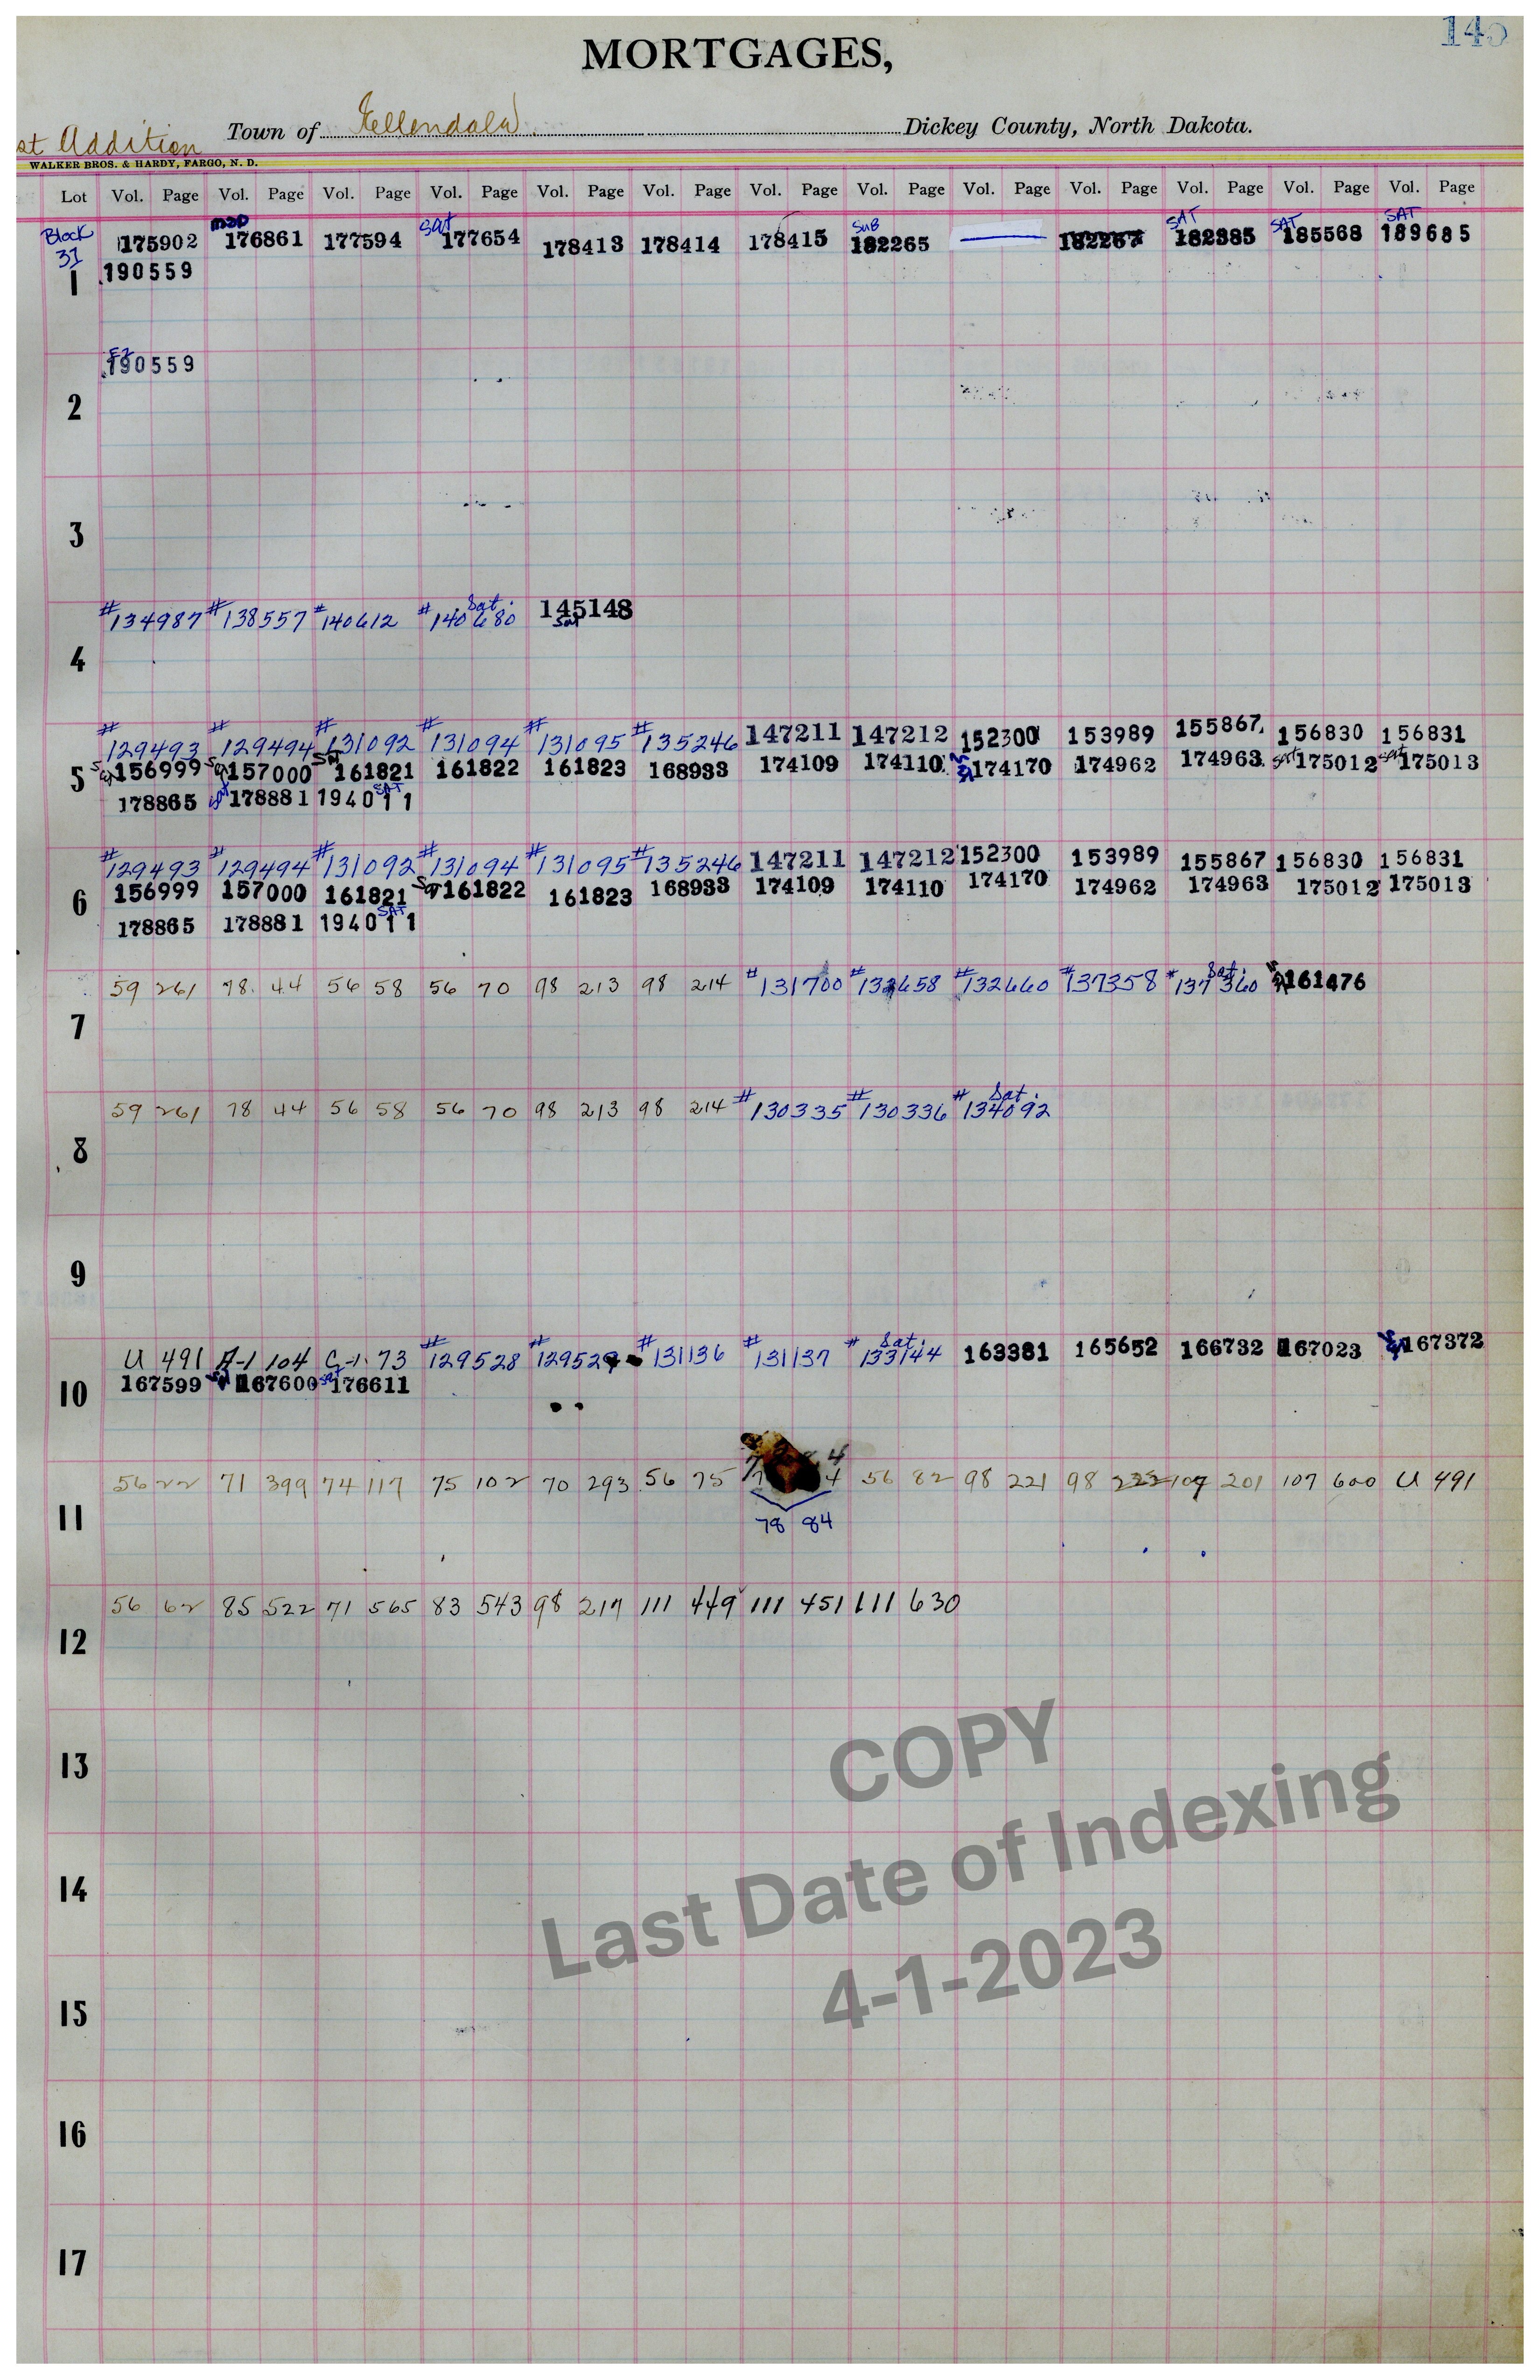 145
MORTGAGES,
st Addition Town of Ellendale Dickey County, North Dakota.
WALKER BROS. & HARDY, FARGO, N. D.
Lot Vol. Page Vol. Page Vol. Page Vol. Page Vol. Page Vol. Page Vol. Page Vol. Page Vol. Page Vol. Page Vol. Page Vol. Page Vol. Page
mod Sat SUB SAT SAT SAT
Block 175902 176861 177594 177654 178413 178414 178415 182265 182267 182385 185568 189685
31
1 190559
E2
190559
2
3
#134987 #138557 #140612 #140680 Sat. 145148
Sat
4
#129493 #129494 #131092 #131094 #131095 #135246 147211 147212 152300 153989 155867 156830 156831
5 Sat 156999 Sat 157000 Sat 161821 161822 161823 168933 174109 174110 174170 174962 174963 Sat 175012 Sat 175013
178865 178881 194011 SAT
#129493 #129494 #131092 #131094 #131095 #135246 147211 147212 152300 153989 155867 156830 156831
6 156999 157000 161821 Sat 161822 161823 168933 174109 174110 174170 174962 174963 175012 175013
178865 178881 194011 SAT
59 261 78 44 56 58 56 70 98 213 98 214 #131700 #132658 #132660 #137358 #137360 Sat. 161476
7
59 261 78 44 56 58 56 70 98 213 98 214 #130335 #130336 #134092 Sat.
8
9
U 491 A-1 104 G-1 73 #129528 #129529 #131136 #131137 #133144 Sat. 163381 165652 166732 167023 167372
10 167599 167600 Sat 176611
56 22 71 399 74 117 75 102 70 293 56 75 4 56 82 98 221 98 222 107 201 107 600 U 491
11 78 84
56 62 85 522 71 565 83 543 98 217 111 449 111 451 111 630
12
13
COPY
Last Date of Indexing
4-1-2023
14
15
16
17